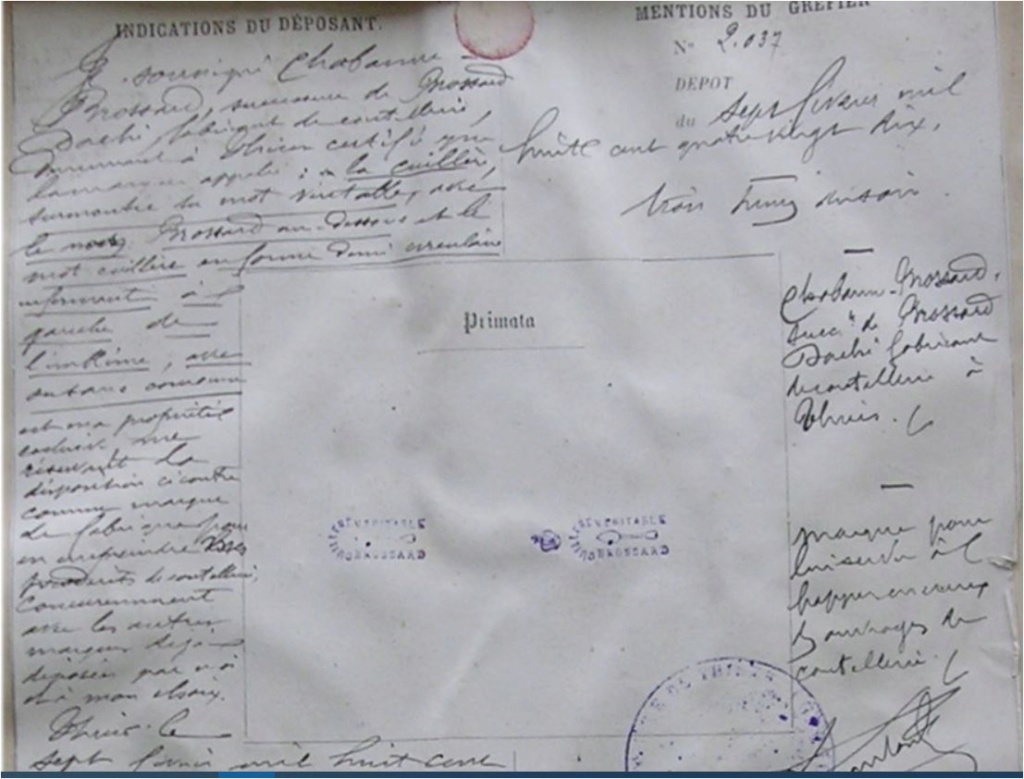 INDICATIONS DU DÉPOSANT.
soussigné Chabanne
Brossard, successeur de Brossard
Daché fabricant de coutellerie,
demeurant à Thiers certifie que
la marque appelée : " la cuillère,
surmontée du mot véritable, avec
le mot Brossard au-dessous et le
mot cuillère en forme demi circulaire
à
gauche de
avec
est ma propriété
exclusive me
réservant la
disposition ci contre
comme marque
de fabrique pour
en
produits de coutellerie,
concurremment
avec les autres
marques déjà
déposées par moi
à mon choix.
Thiers le
sept février mil huit cent
MENTIONS DU GREFIER
N° 2.037
DEPOT
du sept février mil
huit cent quatre vingt dix,
trois du soir.
Chabanne-Brossard,
succr de Brossard
Daché fabricant
de coutellerie à
Thiers.
marque pour
à
frapper en creux
ouvrages de
coutellerie.
Primata
CUILLERE VERITABLE
BROSSARD
CUILLERE VERITABLE
BROSSARD
DE THIERS